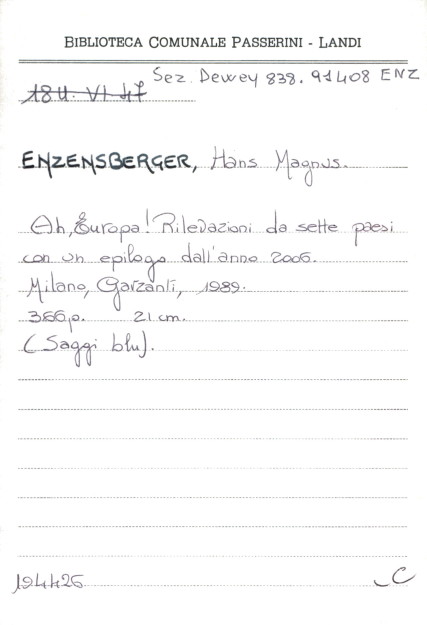 BIBLIOTECA COMUNALE PASSERINI - LANDI
Sez. Dewey 838.91408 ENZ
18U. VI 47
ENZENSBERGER, Hans Magnus.
Ah, Europa! Rilevazioni da sette paesi
con un epilogo dall'anno 2006.
Milano, Garzanti, 1989.
366p. 21 cm.
(Saggi blu).
194426 C